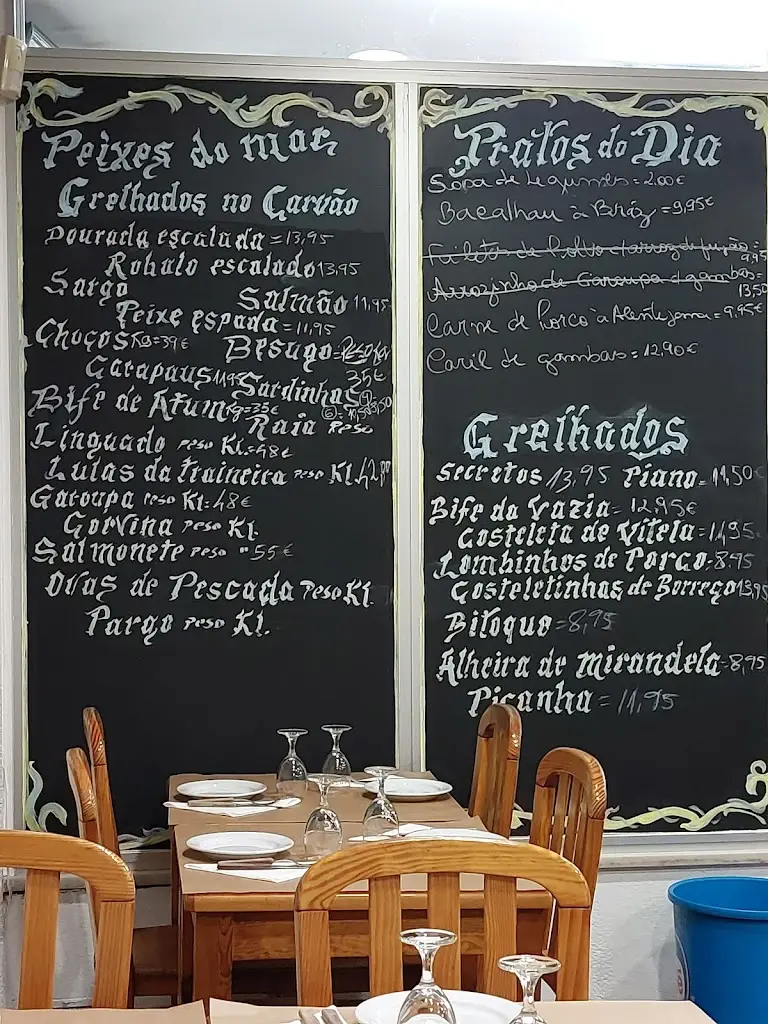 Peixes do mar
Grelhados no Carvão
Dourada escalada = 13,95
Robalo escalado 13,95
Sargo Salmão 11,95
Peixe espada = 11,95
Chocos KG=39€ Besugo=
Carapaus 11,95 Sardinhas 35€
Bife de Atum Kg=35€
Raia Peso
Linguado Peso Kl.=48€
Lulas da traineira Peso Kl.
Garoupa Peso Kl=48€
Corvina Peso Kl.
Salmonete Peso " 55€
Ovas de Pescada Peso Kl.
Pargo Peso Kl.
Pratos do Dia
Sopa de Legumes = 2,00€
Bacalhau à Bráz = 9,95€
Filetes de Polvo c/arroz de feijão = 9,95
Arrozinho de Garoupa c/gambas = 13,50
Carne de Porco à Alentejana = 9,95€
Caril de gambas = 12,90€
Grelhados
Secretos 13,95 Piano = 11,50€
Bife da Vazia = 12,95€
Costeleta de Vitela = 11,95
Lombinhos de Porco = 8,95
Costeletinhas de Borrego 13,95
Bitoque = 8,95
Alheira de mirandela - 8,95
Picanha = 11,95